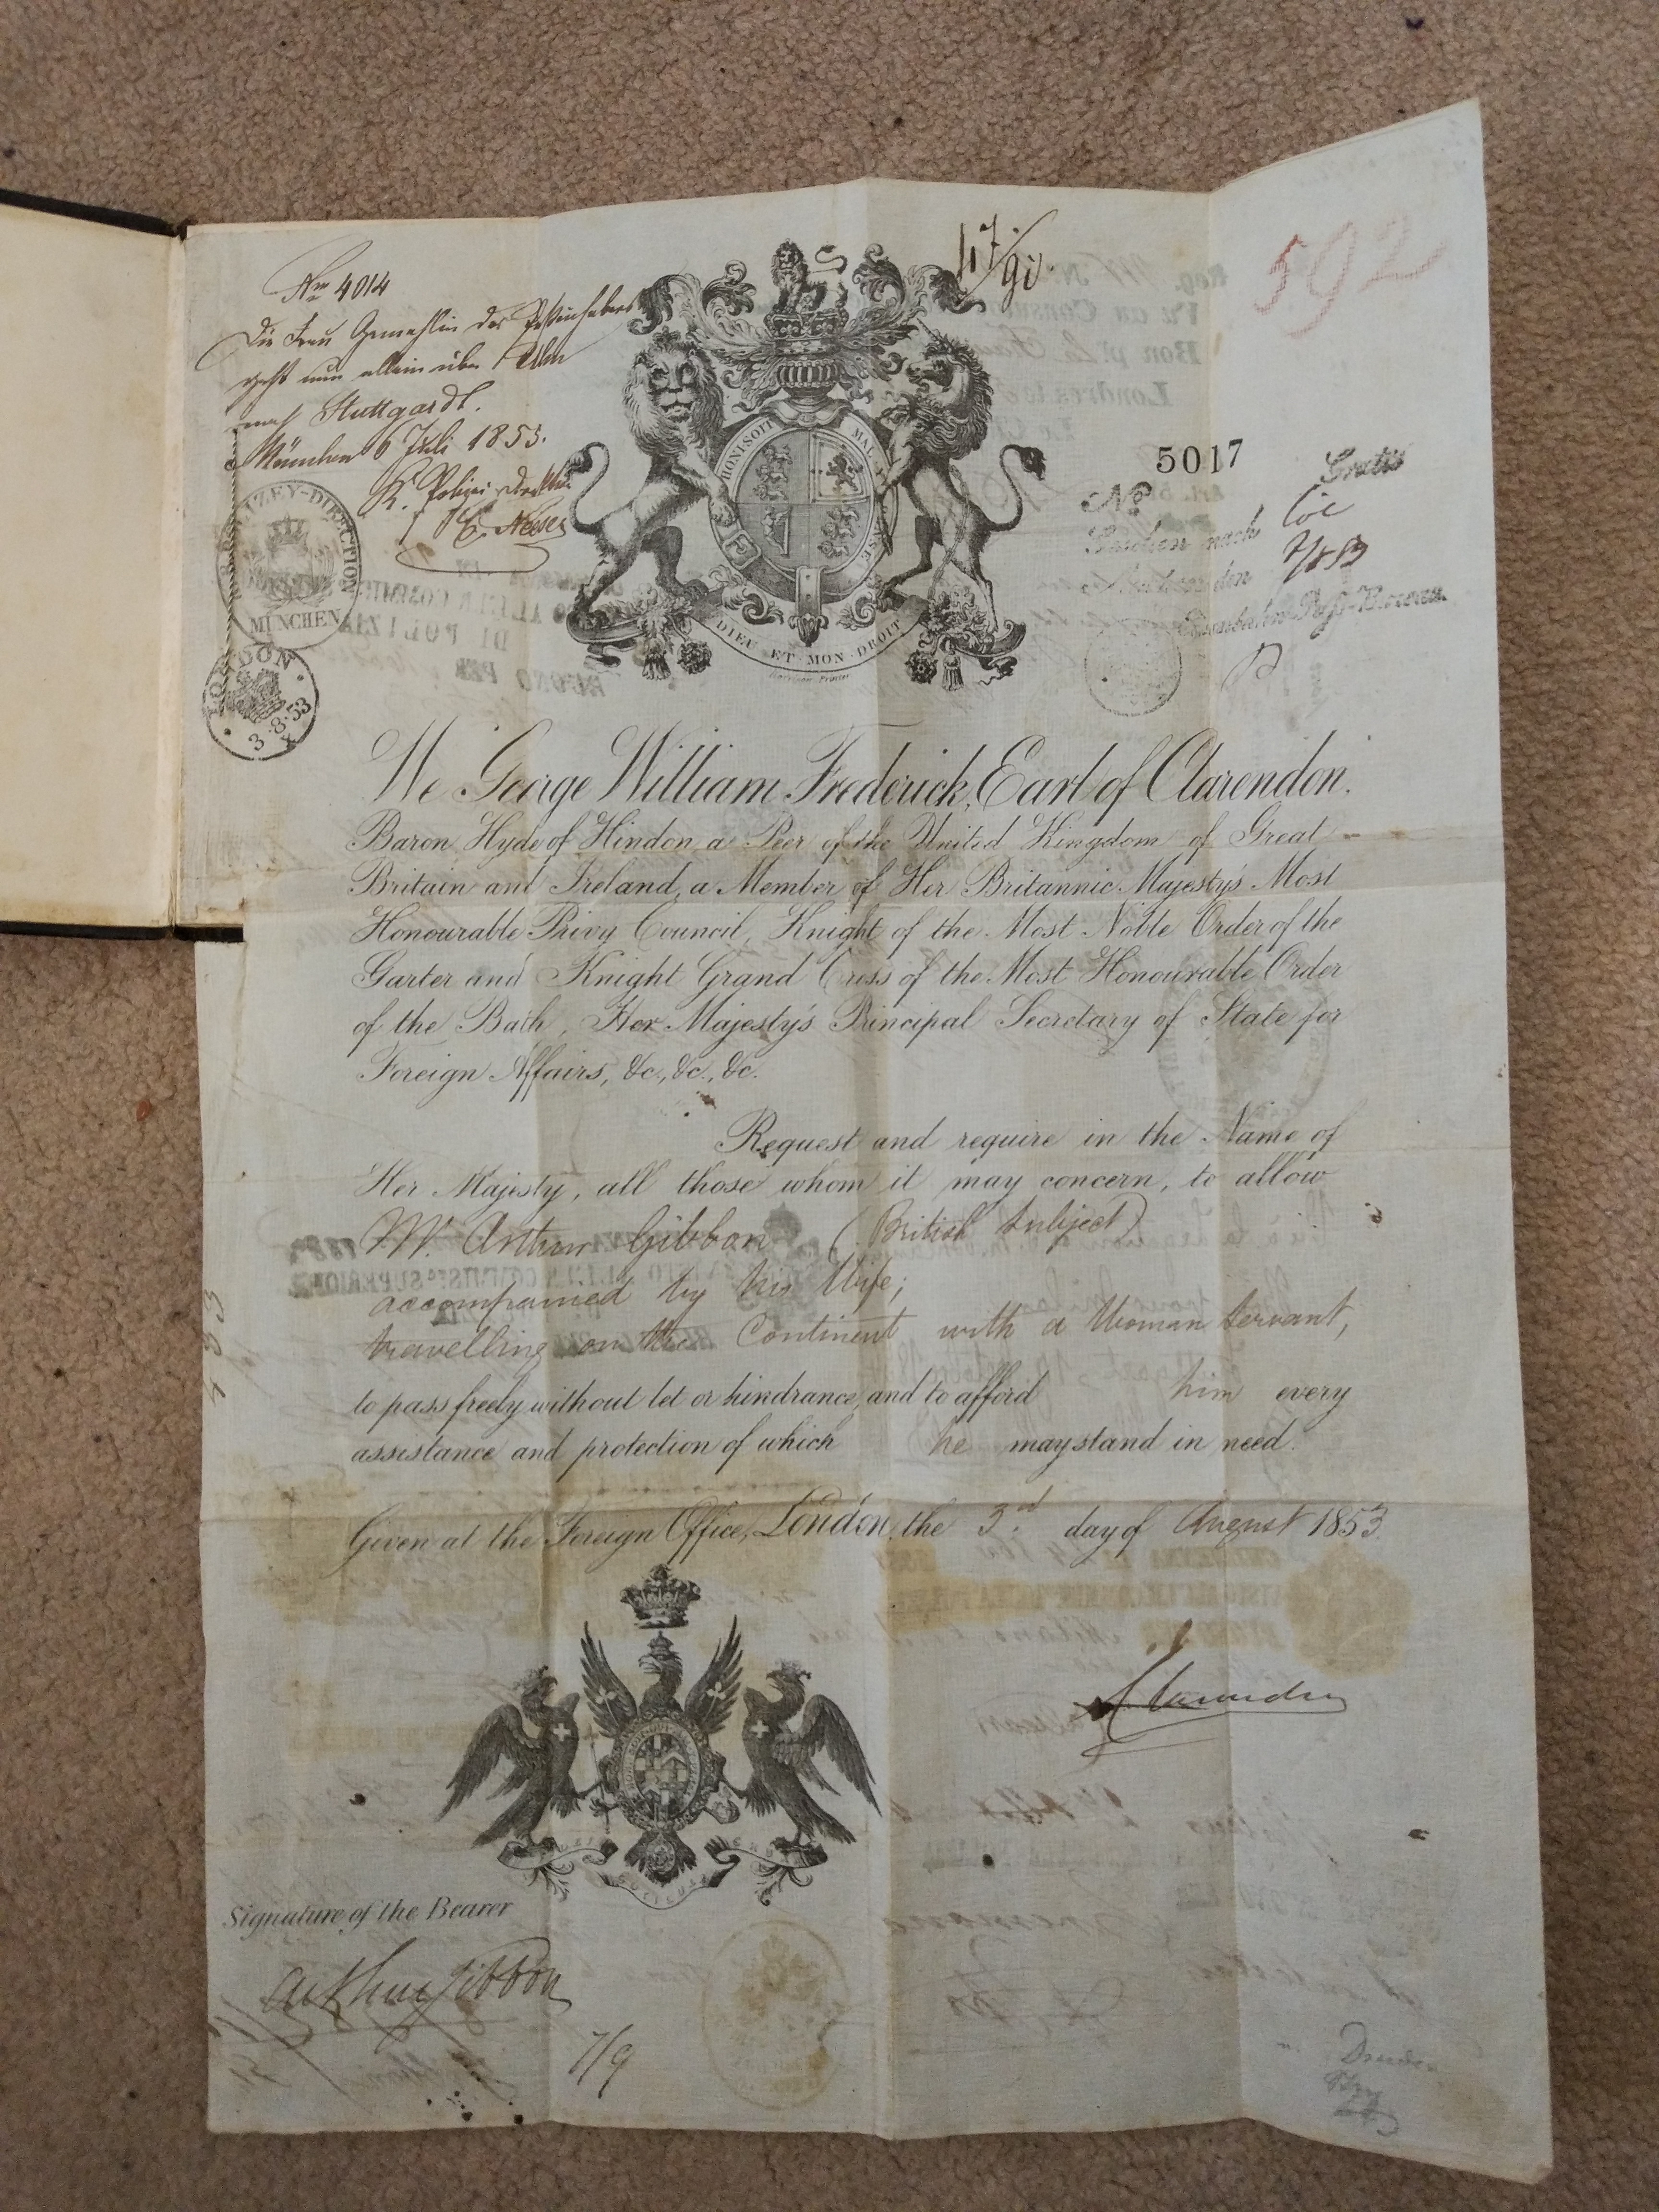 No 4014
Die Frau Gemahlin des Paßinhabers
geht nun allein über Ulm
nach Stuttgardt.
München 6 Juli 1853.
K. Polizei Direktion
POLIZEY-DIRECTION
MÜNCHEN
LONDON
3·8·53
592
HONI SOIT MAL Y PENSE
DIEU ET MON DROIT
Harrison Printer
5017
No
Gratis
Gesehen nach
den
Eisenbahn-Paß-Bureau.
We George William Frederick, Earl of Clarendon,
Baron Hyde of Hindon, a Peer of the United Kingdom of Great
Britain and Ireland, a Member of Her Britannic Majesty's Most
Honourable Privy Council, Knight of the Most Noble Order of the
Garter and Knight Grand Cross of the Most Honourable Order
of the Bath, Her Majesty's Principal Secretary of State for
Foreign Affairs, &c., &c., &c.
Request and require in the Name of
Her Majesty, all those whom it may concern, to allow
Mr. Arthur Gibbon (British Subject)
accompanied by his Wife;
travelling on the Continent with a Woman Servant,
to pass freely without let or hindrance, and to afford him every
assistance and protection of which he may stand in need.
Given at the Foreign Office, London, the 3rd day of August 1853.
Clarendon
Signature of the Bearer
Arthur Gibbon
7/9